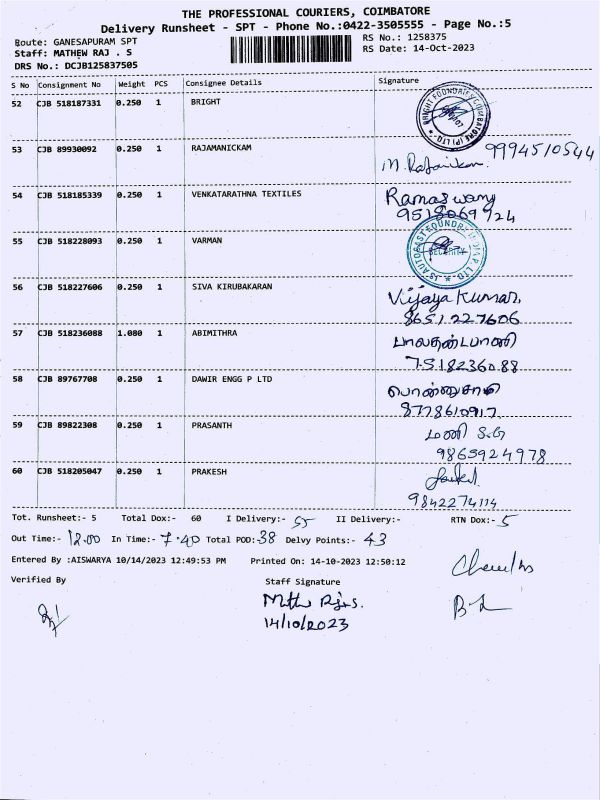 THE PROFESSIONAL COURIERS, COIMBATORE
Delivery Runsheet - SPT - Phone No.:0422-3505555 - Page No.:5
Route: GANESAPURAM SPT
RS No.: 1258375
Staff: MATHEW RAJ . S
RS Date: 14-Oct-2023
DRS No.: DCJB125837505
S No Consignment No Weight PCS Consignee Details Signature
52 CJB 518187331 0.250 1 BRIGHT
53 CJB 89930092 0.250 1 RAJAMANICKAM
9994510544
54 CJB 518185339 0.250 1 VENKATARATHNA TEXTILES Ramaswamy
9518069724
55 CJB 518228093 0.250 1 VARMAN
SECURITY
56 CJB 518227606 0.250 1 SIVA KIRUBAKARAN Vijaya Kumar,
8651227606
57 CJB 518236088 1.080 1 ABIMITHRA பாலதண்டபாணி
7518236088
58 CJB 89767708 0.250 1 DAWIR ENGG P LTD பொன்னுசாமி
8778610917
59 CJB 89822308 0.250 1 PRASANTH மணி
9865924978
60 CJB 518205047 0.250 1 PRAKESH
9842274114
Tot. Runsheet:- 5 Total Dox:- 60 I Delivery:- 55 II Delivery:- RTN Dox:- 5
Out Time:- 12.00 In Time:- 7.40 Total POD:- 38 Delvy Points:- 43
Entered By :AISWARYA 10/14/2023 12:49:53 PM Printed On: 14-10-2023 12:50:12
Verified By Staff Signature
14/10/2023